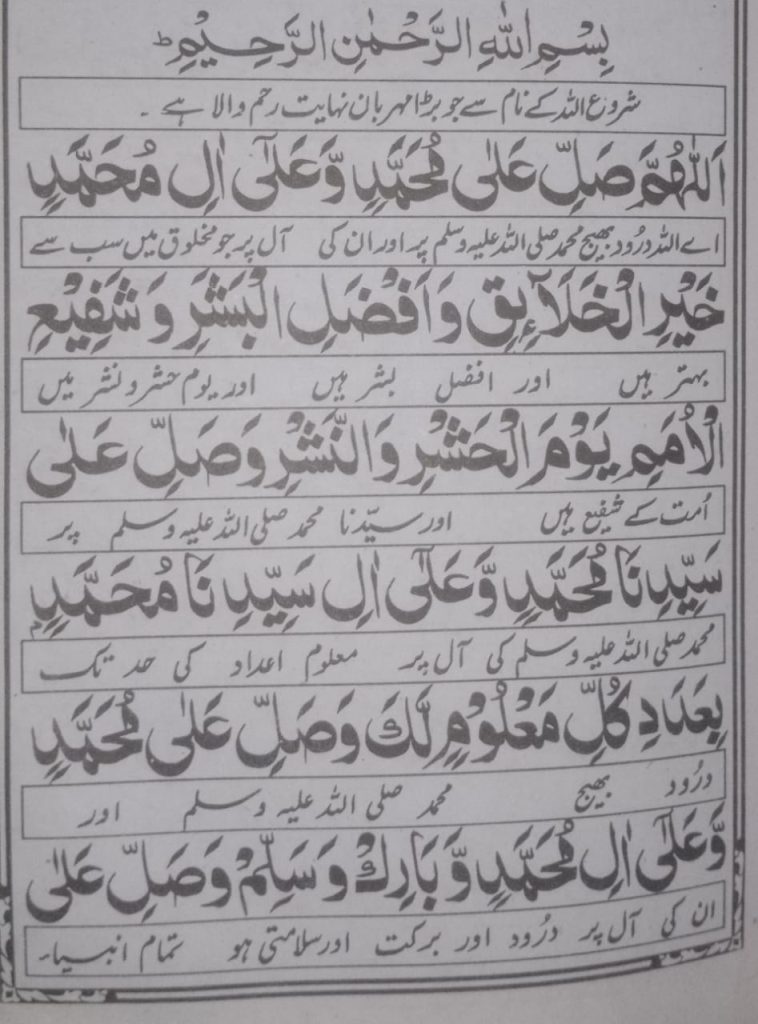 بِسْمِ اللهِ الرَّحْمٰنِ الرَّحِيْمِ ؕ
شروع اللہ کے نام سے جو بڑا مہربان نہایت رحم والا ہے ۔
اَللّٰهُمَّ صَلِّ عَلٰى مُحَمَّدٍ وَّعَلٰٓى اٰلِ مُحَمَّدٍ
اے اللہ درُود بھیج محمد صلی اللہ علیہ وسلم پر اور ان کی آل پر جو مخلوق میں سب سے
خَيْرِ الْخَلَآئِقِ وَاَفْضَلِ الْبَشَرِ وَشَفِيْعِ
بہتر ہیں اور افضل بشر ہیں اور یوم حشر و نشر میں
الْاُمَمِ يَوْمَ الْحَشْرِ وَالنَّشْرِ وَصَلِّ عَلٰى
اُمت کے شفیع ہیں اور سیّدنا محمد صلی اللہ علیہ وسلم پر
سَيِّدِنَا مُحَمَّدٍ وَّعَلٰٓى اٰلِ سَيِّدِنَا مُحَمَّدٍ
محمد صلی اللہ علیہ وسلم کی آل پر معلوم اعداد کی حد تک
بِعَدَدِ كُلِّ مَعْلُوْمٍ لَّكَ وَصَلِّ عَلٰى مُحَمَّدٍ
درُود بھیج محمد صلی اللہ علیہ وسلم اور
وَّعَلٰٓى اٰلِ مُحَمَّدٍ وَّبَارِكْ وَسَلِّمْ وَصَلِّ عَلٰى
ان کی آل پر درُود اور برکت اور سلامتی ہو تمام انبیاء۔